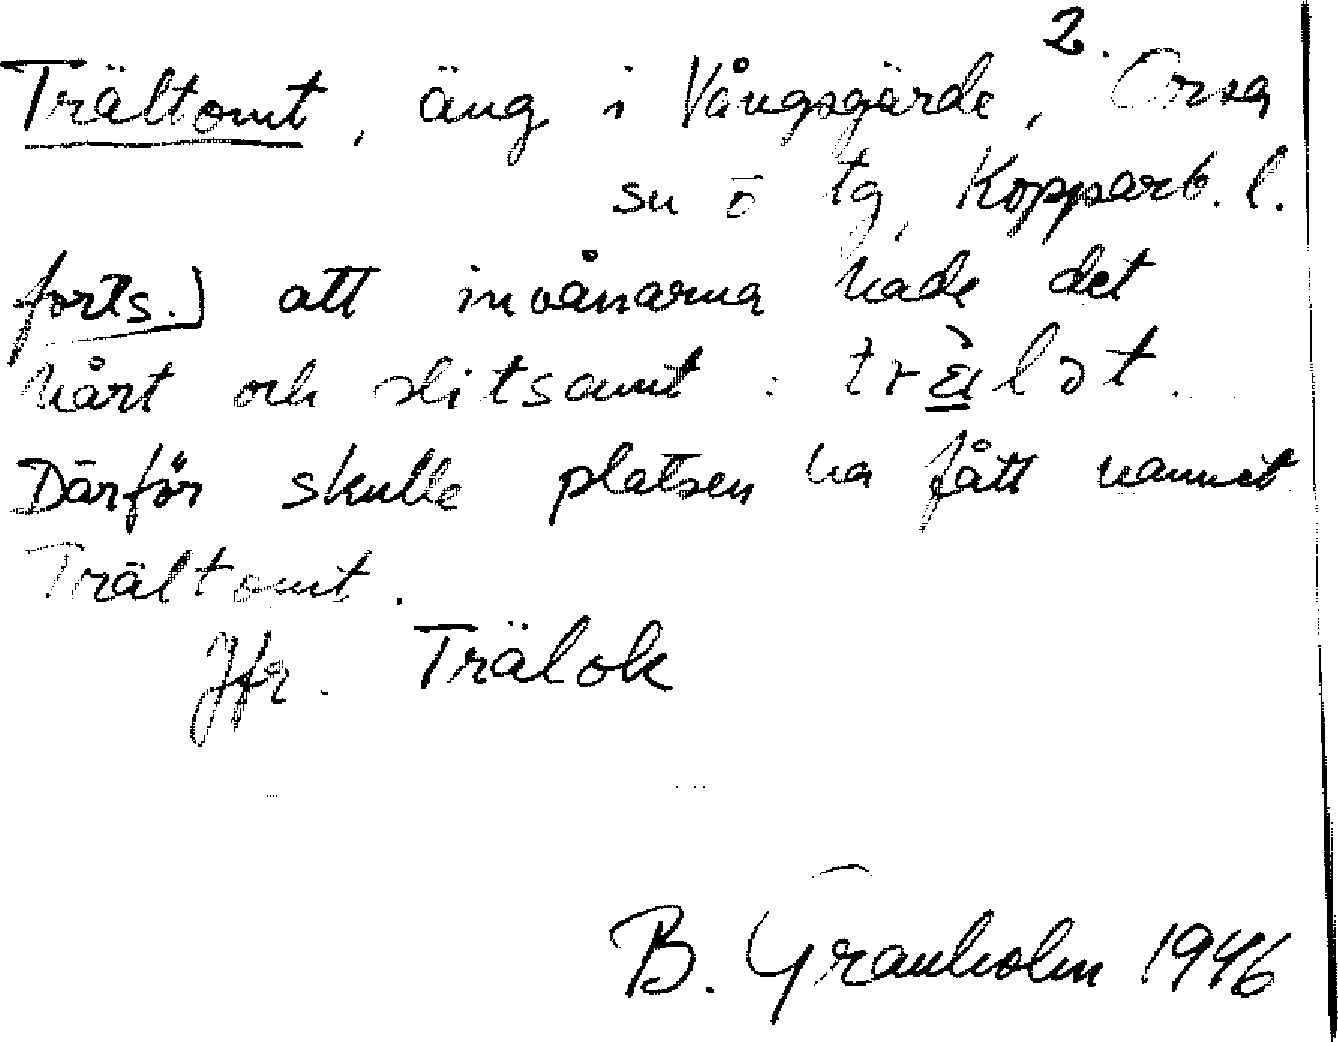 2.
Trältomt, äng i Vångsgärde, Orsa
sn ö tg, Kopparb. l.
forts.) att invånarna hade det
hårt och slitsamt : trä̀lət.
Därför skulle platsen ha fått namnet
Trältomt.
Jfr. Trälok
B. Granholm 1946